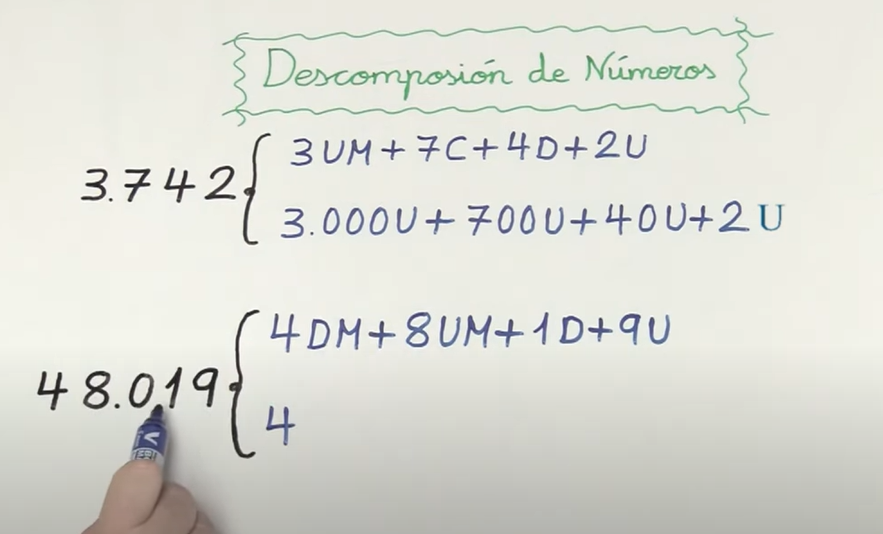 Descomposión de Números
3.742 { 3UM+7C+4D+2U
3.000U+700U+40U+2 U
48.019 { 4DM+8UM+1D+9U
4
V